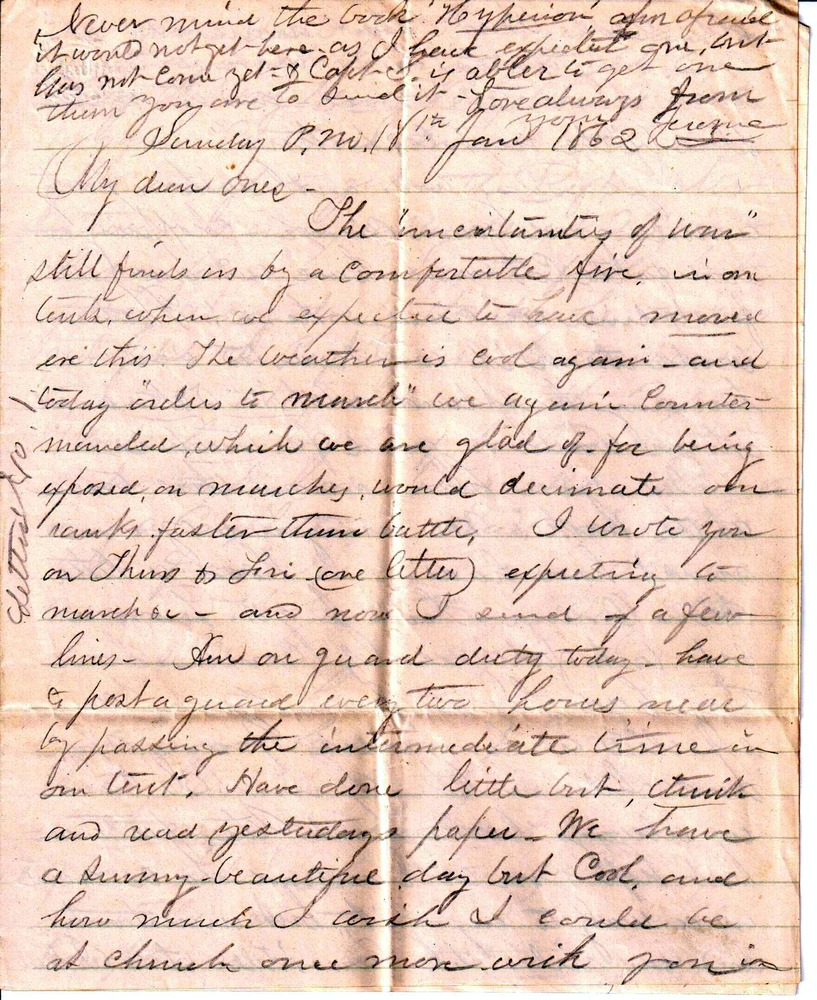 Never mind the book "Hyperion" am afraid
it would not get here as I have expected one, but
has not come yet - & Capt is abler to get one
than you are to send it - Love always from
your Jerome
Sunday P.M. 18th Jan 1862
My dear ones -
The "uncertainties of war"
still finds us by a comfortable fire, in our
tents, when we expected to have moved
ere this. The weather is cool again - and
today "orders to march" we again Counter
manded, which we are glad of - for being
exposed, on marches, would decimate our
ranks faster than battle. I wrote you
on Thurs & Fri - (one letter) expecting to
march &c - and now I send a few
lines - Am on guard duty today - have
to post a guard every two hours near
by passing the intermediate time in
our tent. Have done little but, think
and read yesterdays paper - We have
a sunny - beautiful day but Cool, and
how much I wish I could be
at church once more with you in
Letter No. 1